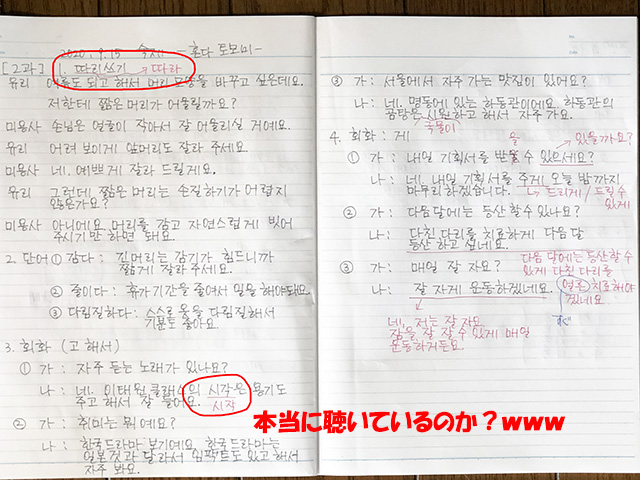 2020. 9. 15 숙제 - 혼다 토모미 -
[2과] 1. 따리쓰기 → 따라
유리 여름도 되고 해서 머리 모양을 바꾸고 싶은데요.
저한테 짧은 머리가 어울릴까요?
미용사 손님은 얼굴이 작아서 잘 어울리실 거예요.
유리 어려 보이게 앞머리도 잘라 주세요.
미용사 네. 예쁘게 잘라 드릴게요.
유리 그런데 짧은 머리는 손질하기가 어렵지
않은가요?
미용사 아니에요. 머리를 감고 자연스럽게 빗어
주시기만 하면 돼요.
2. 단어 ① 감다 : 긴 머리는 감기가 힘드니까
짧게 잘라 주세요.
② 줄이다 : 휴가기간을 줄여서 일을 해야돼요.
③ 다림질하다 : 스스로 옷을 다림질해서
기분도 좋아요.
3. 회화 (고 해서)
① 가 : 자주 듣는 노래가 있나요?
나 : 네. 이태원 클래스의 시작은 용기도
주고 해서 잘 들어요. 시작
② 가 : 취미는 뭐예요?
나 : 한국드라마 보기예요. 한국드라마는
일본것과 달라서 임팩트도 있고 해서
자주 봐요.
③ 가 : 서울에서 자주 가는 맛집이 있어요?
나 : 네. 명동에 있는 하동관이에요. 하동관의
곰탕은 시원하고 해서 자주 가요.
국물이
4. 회화 : 게
을 있을까요?
① 가 : 내일 기획서를 받을 수 있으세요?
나 : 네. 내일 기획서를 주게 오늘 밤까지
마무리 하겠습니다. → 드리게 / 드릴 수
있게
② 가 : 다음달에는 등산할 수 있나요?
나 : 다친 다리를 치료하게 다음 달
등산하고 싶네요.
③ 가 : 매일 잘 자요? 다음 달에는 등산할 수
있게 다친 다리를
나 : 잘 자게 운동하겠네요. 얼른 치료해야
겠네요.
すぐ
네. 저는 잘 자요
잠을 잘 잘 수 있게 매일
운동하거든요.
本当に聴いているのか？www